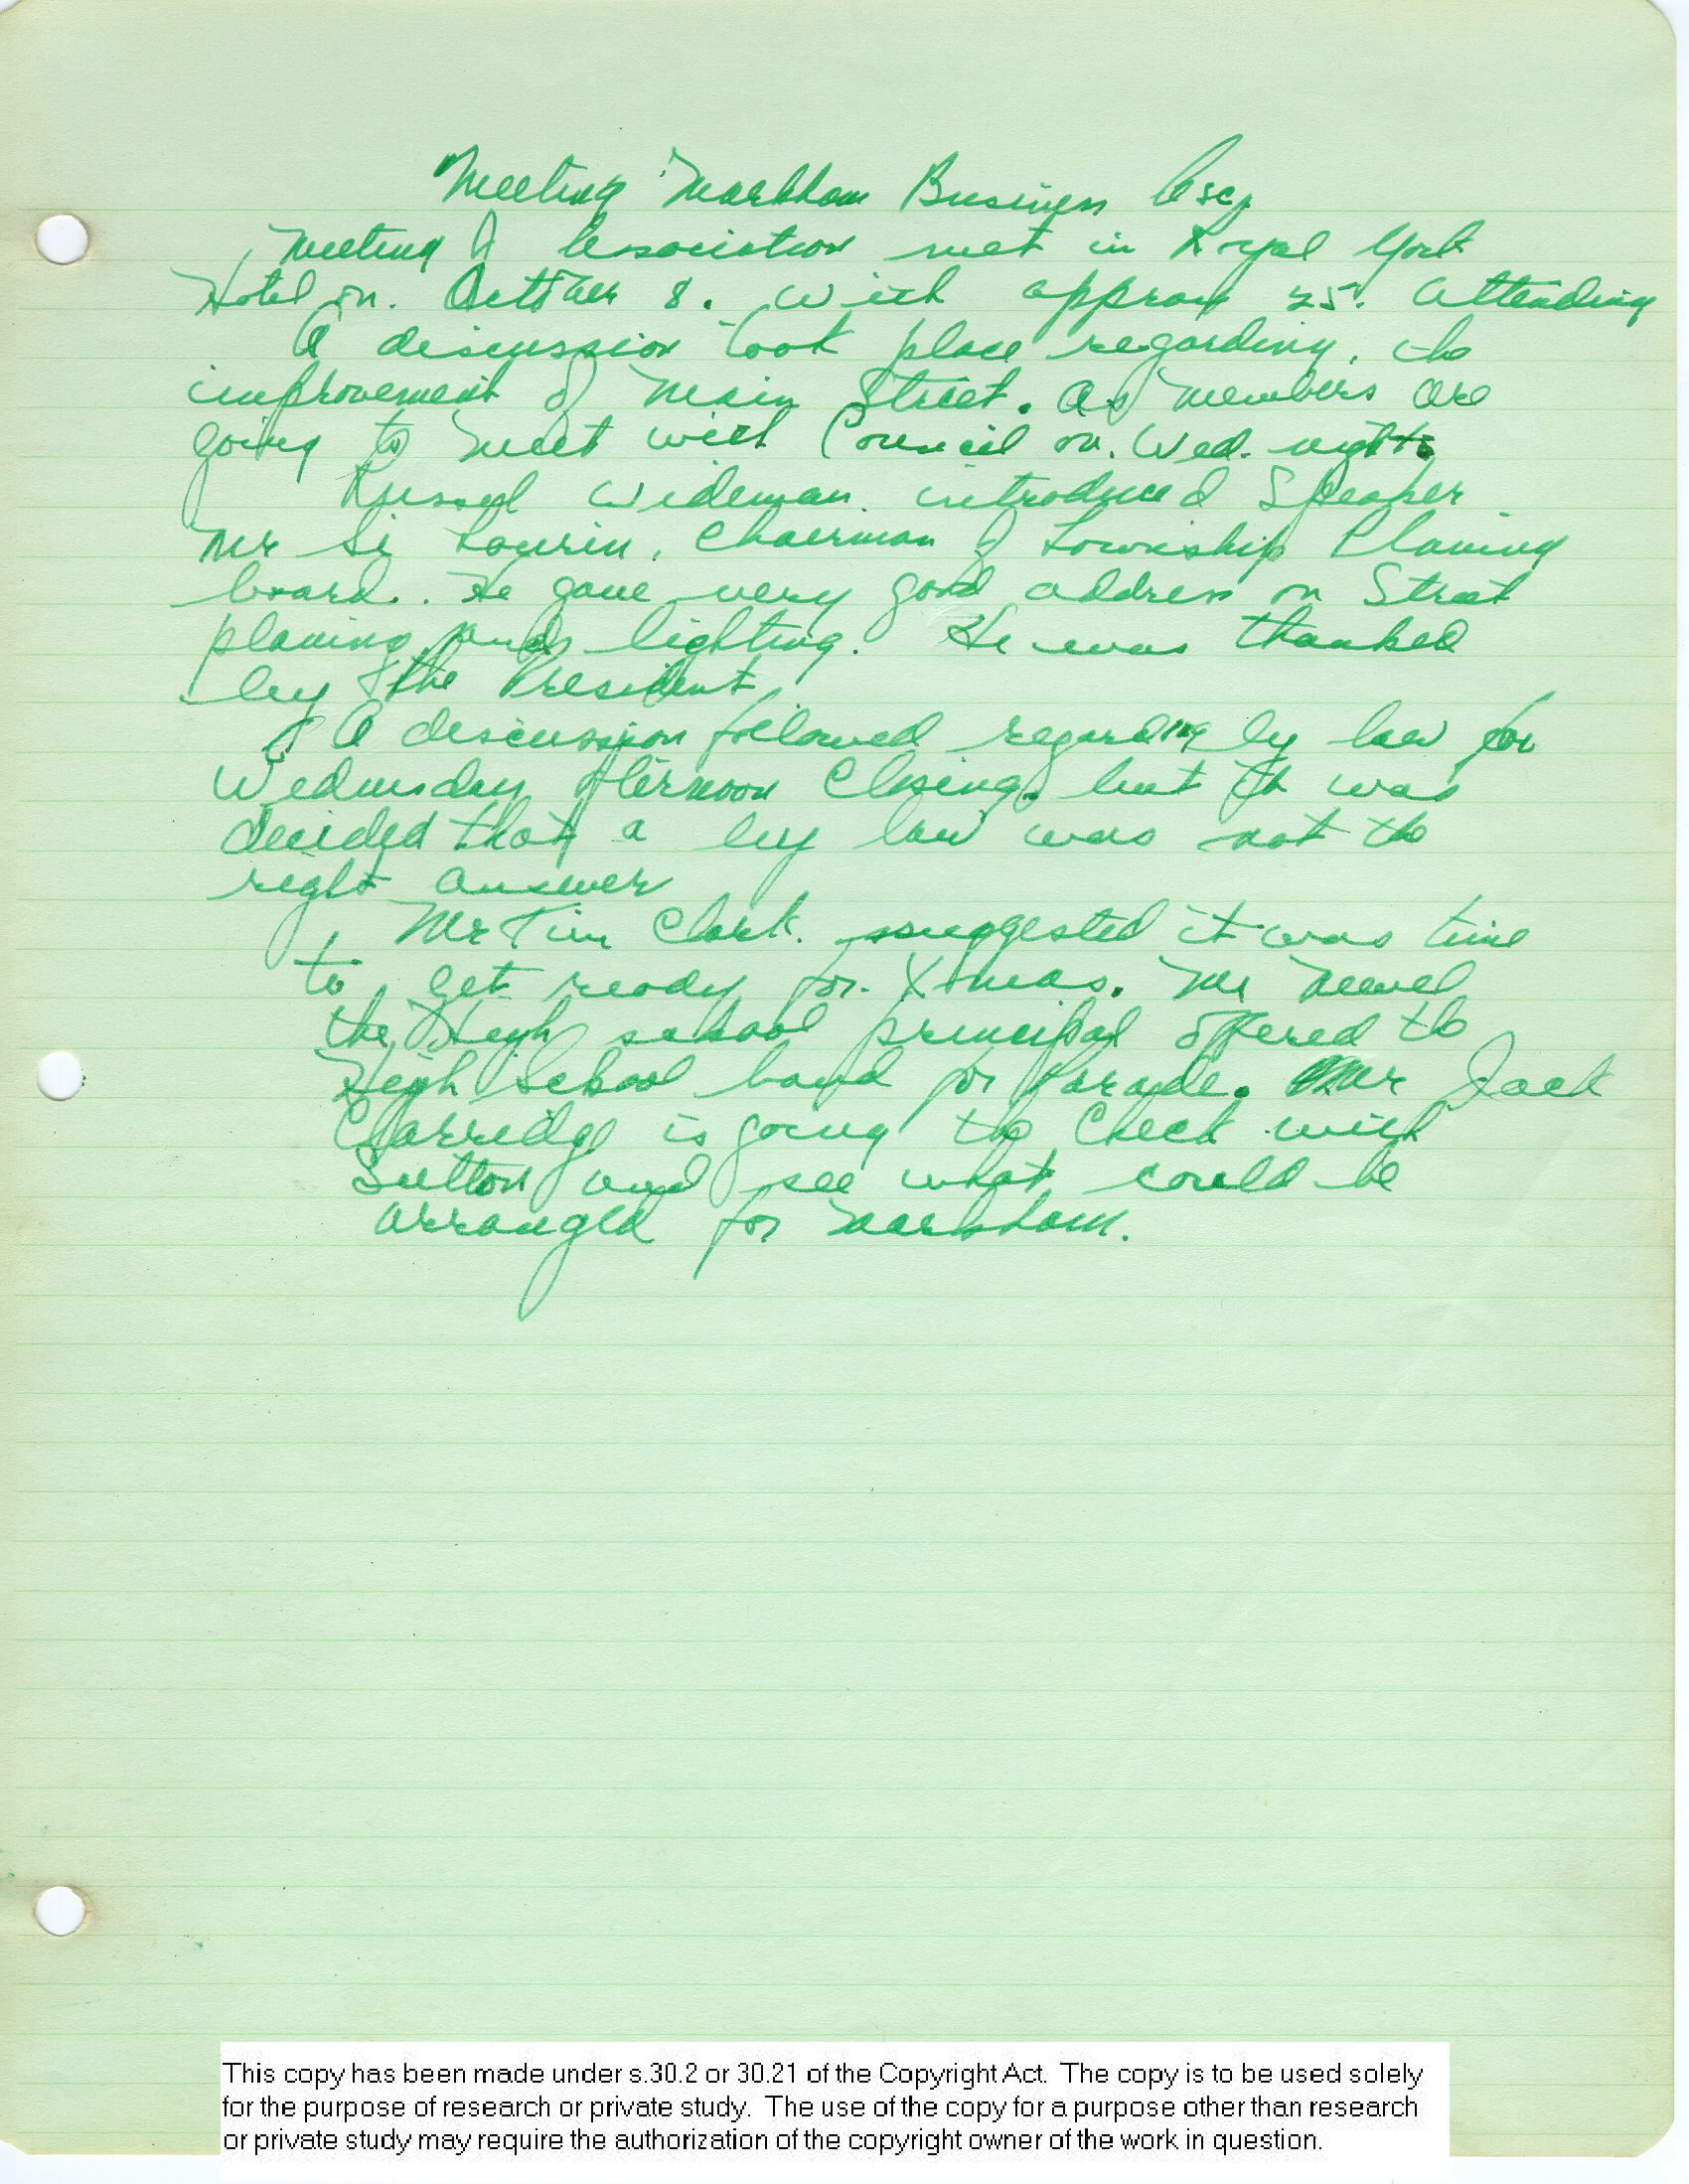 Meeting Markham Business Assc.
Meeting of Association met in Royal York
Hotel on. October 8. with approx 25. attending
A discussion took place regarding, the
improvement of Main Street. as members are
going to meet with Council on. Wed. night
Russel Wideman. introduced Speaker
Mr Si Laurin, Chairman of Township Planing
board. He gave very good address on Street
planing and lighting. He was thanked
by the President
A discussion followed regarding by law for
Wednesday afternoon Closing. but it was
decided that a by law was not the
right answer
Mr Tim Clark. suggested it was time
to get ready for. Xmas. Mr Newel
the High school principal offered the
High School band for Parade. Mr Jack
Clarridge is going to Check with
Sutton and see what could be
arranged for Markham.
This copy has been made under s.30.2 or 30.21 of the Copyright Act. The copy is to be used solely
for the purpose of research or private study. The use of the copy for a purpose other than research
or private study may require the authorization of the copyright owner of the work in question.